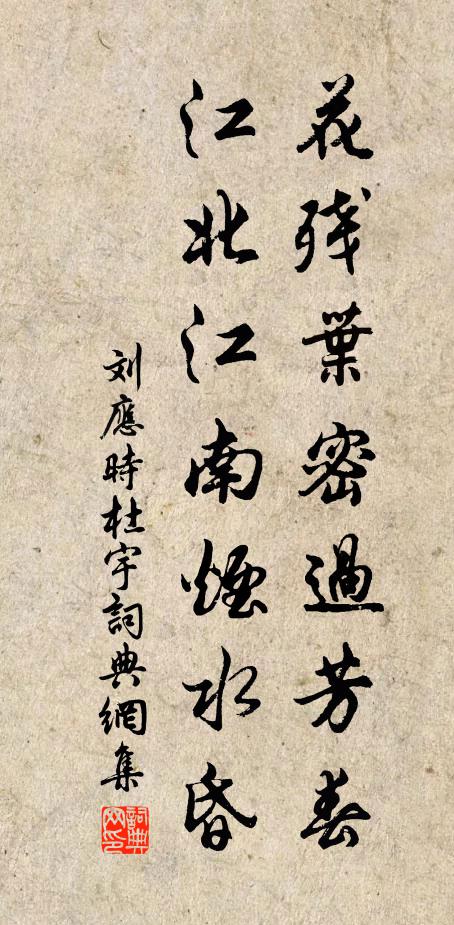 花残葉密過芳春
江北江南煙水昏
刘應時杜宇詞典網集
詞典网印